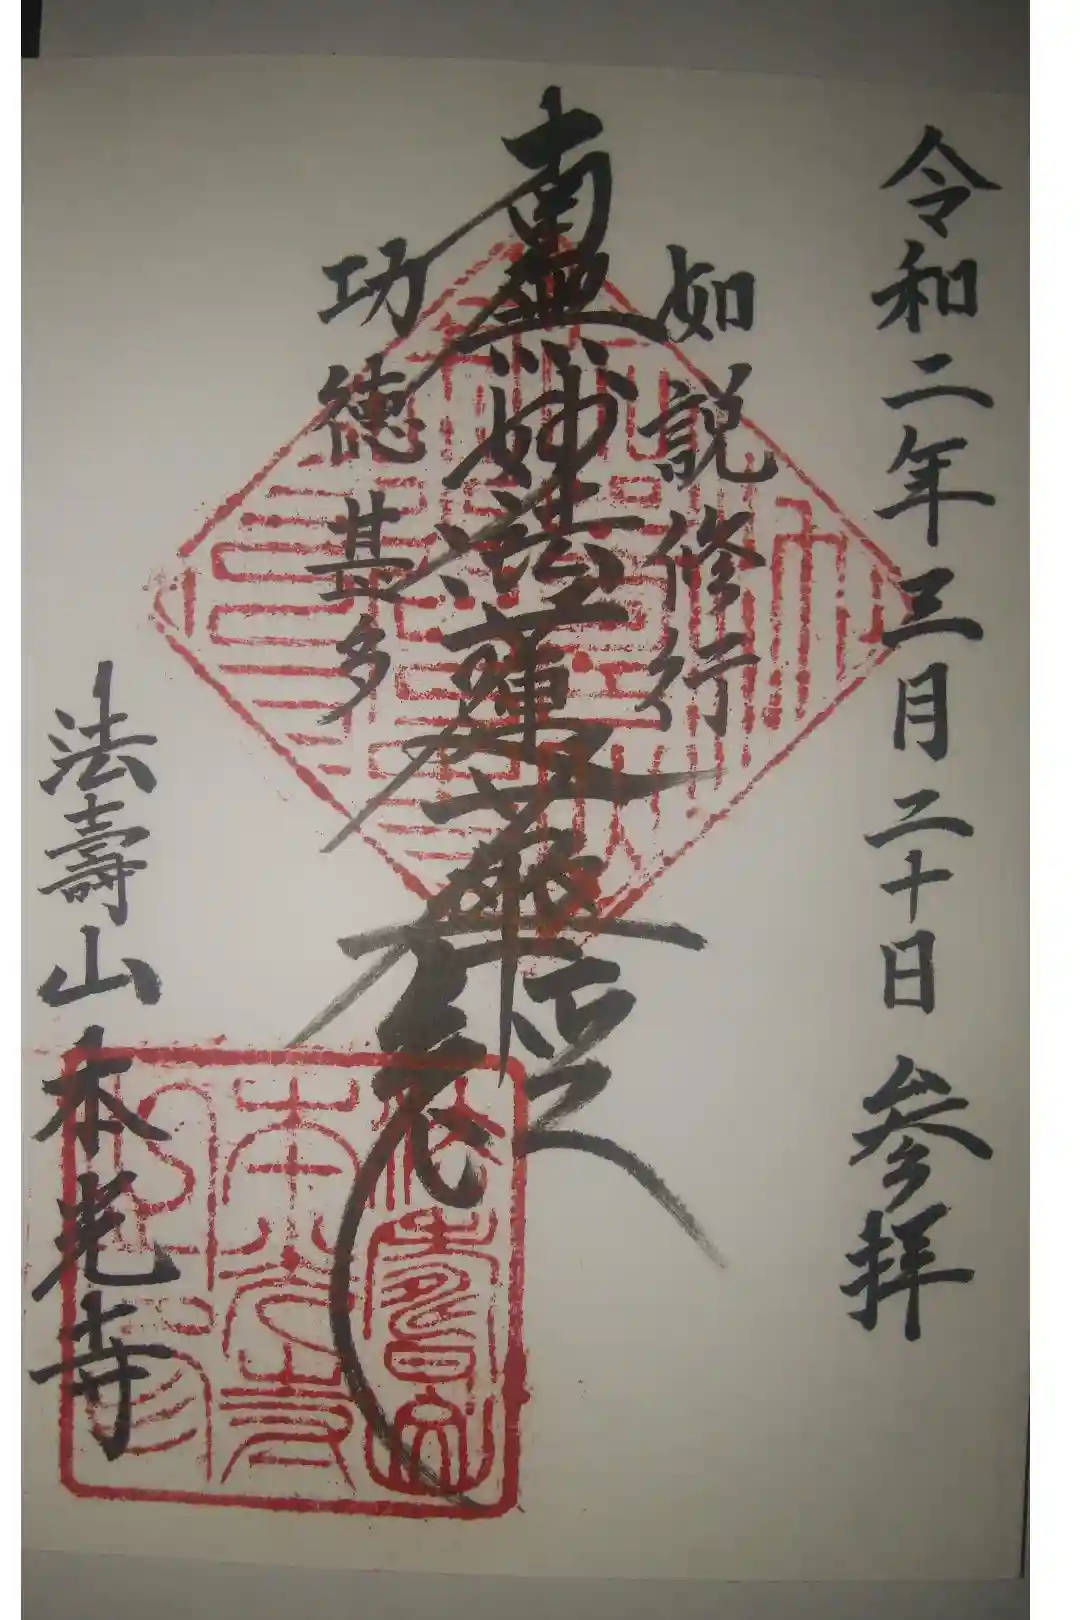 令和二年三月二十日 参拝
如説修行
南無妙法蓮華経
功徳甚多
法壽山本光寺
本光寺
之印